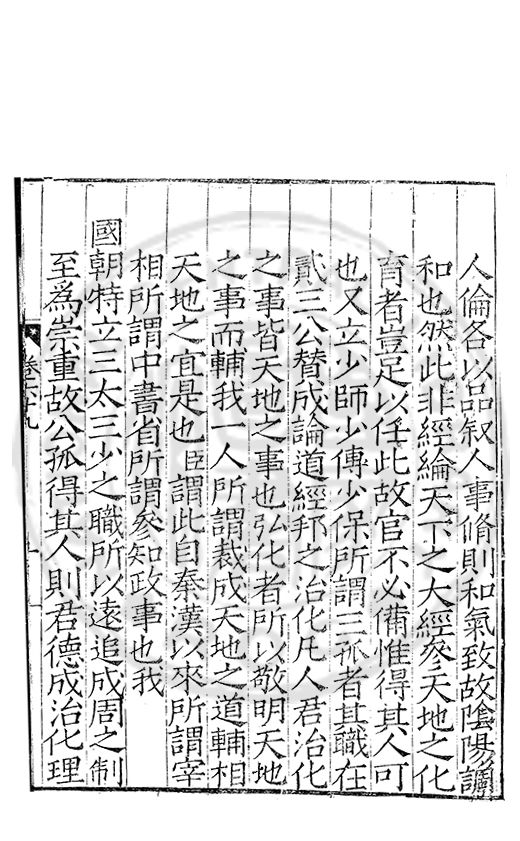 人倫各以品叙人事脩則和氣致故隂陽調
和也然此非經綸天下之大經叅天地之化
育者豈足以任此故官不必備惟得其人可
也又立少師少傅少保所謂三孤者其職在
貳三公賛成論道經邦之治化凡人君治化
之事皆天地之事也弘化者所以敬明天地
之事而輔我一人所謂裁成天地之道輔相
天地之宜是也臣謂此自秦漢以來所謂宰
相所謂中書省所謂參知政事也我
國朝特立三太三少之職所以遠追成周之制
至爲崇重故公孤得其人則君德成治化理
卷六十九